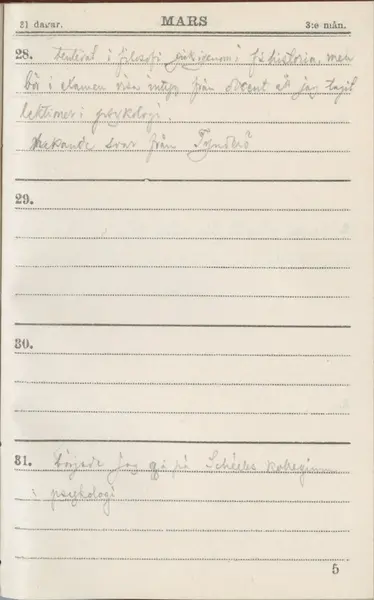 31 dagar. MARS 3:e mån.
28. Tenterat i filosofi gick igenom i fs historia, men
bör i examen visa intyg från docent att jag tagit
lektioner i psykologi.
Nekande svar från
29.
30.
31. började jag gå på Schéeles kollegium
i psykologi
5